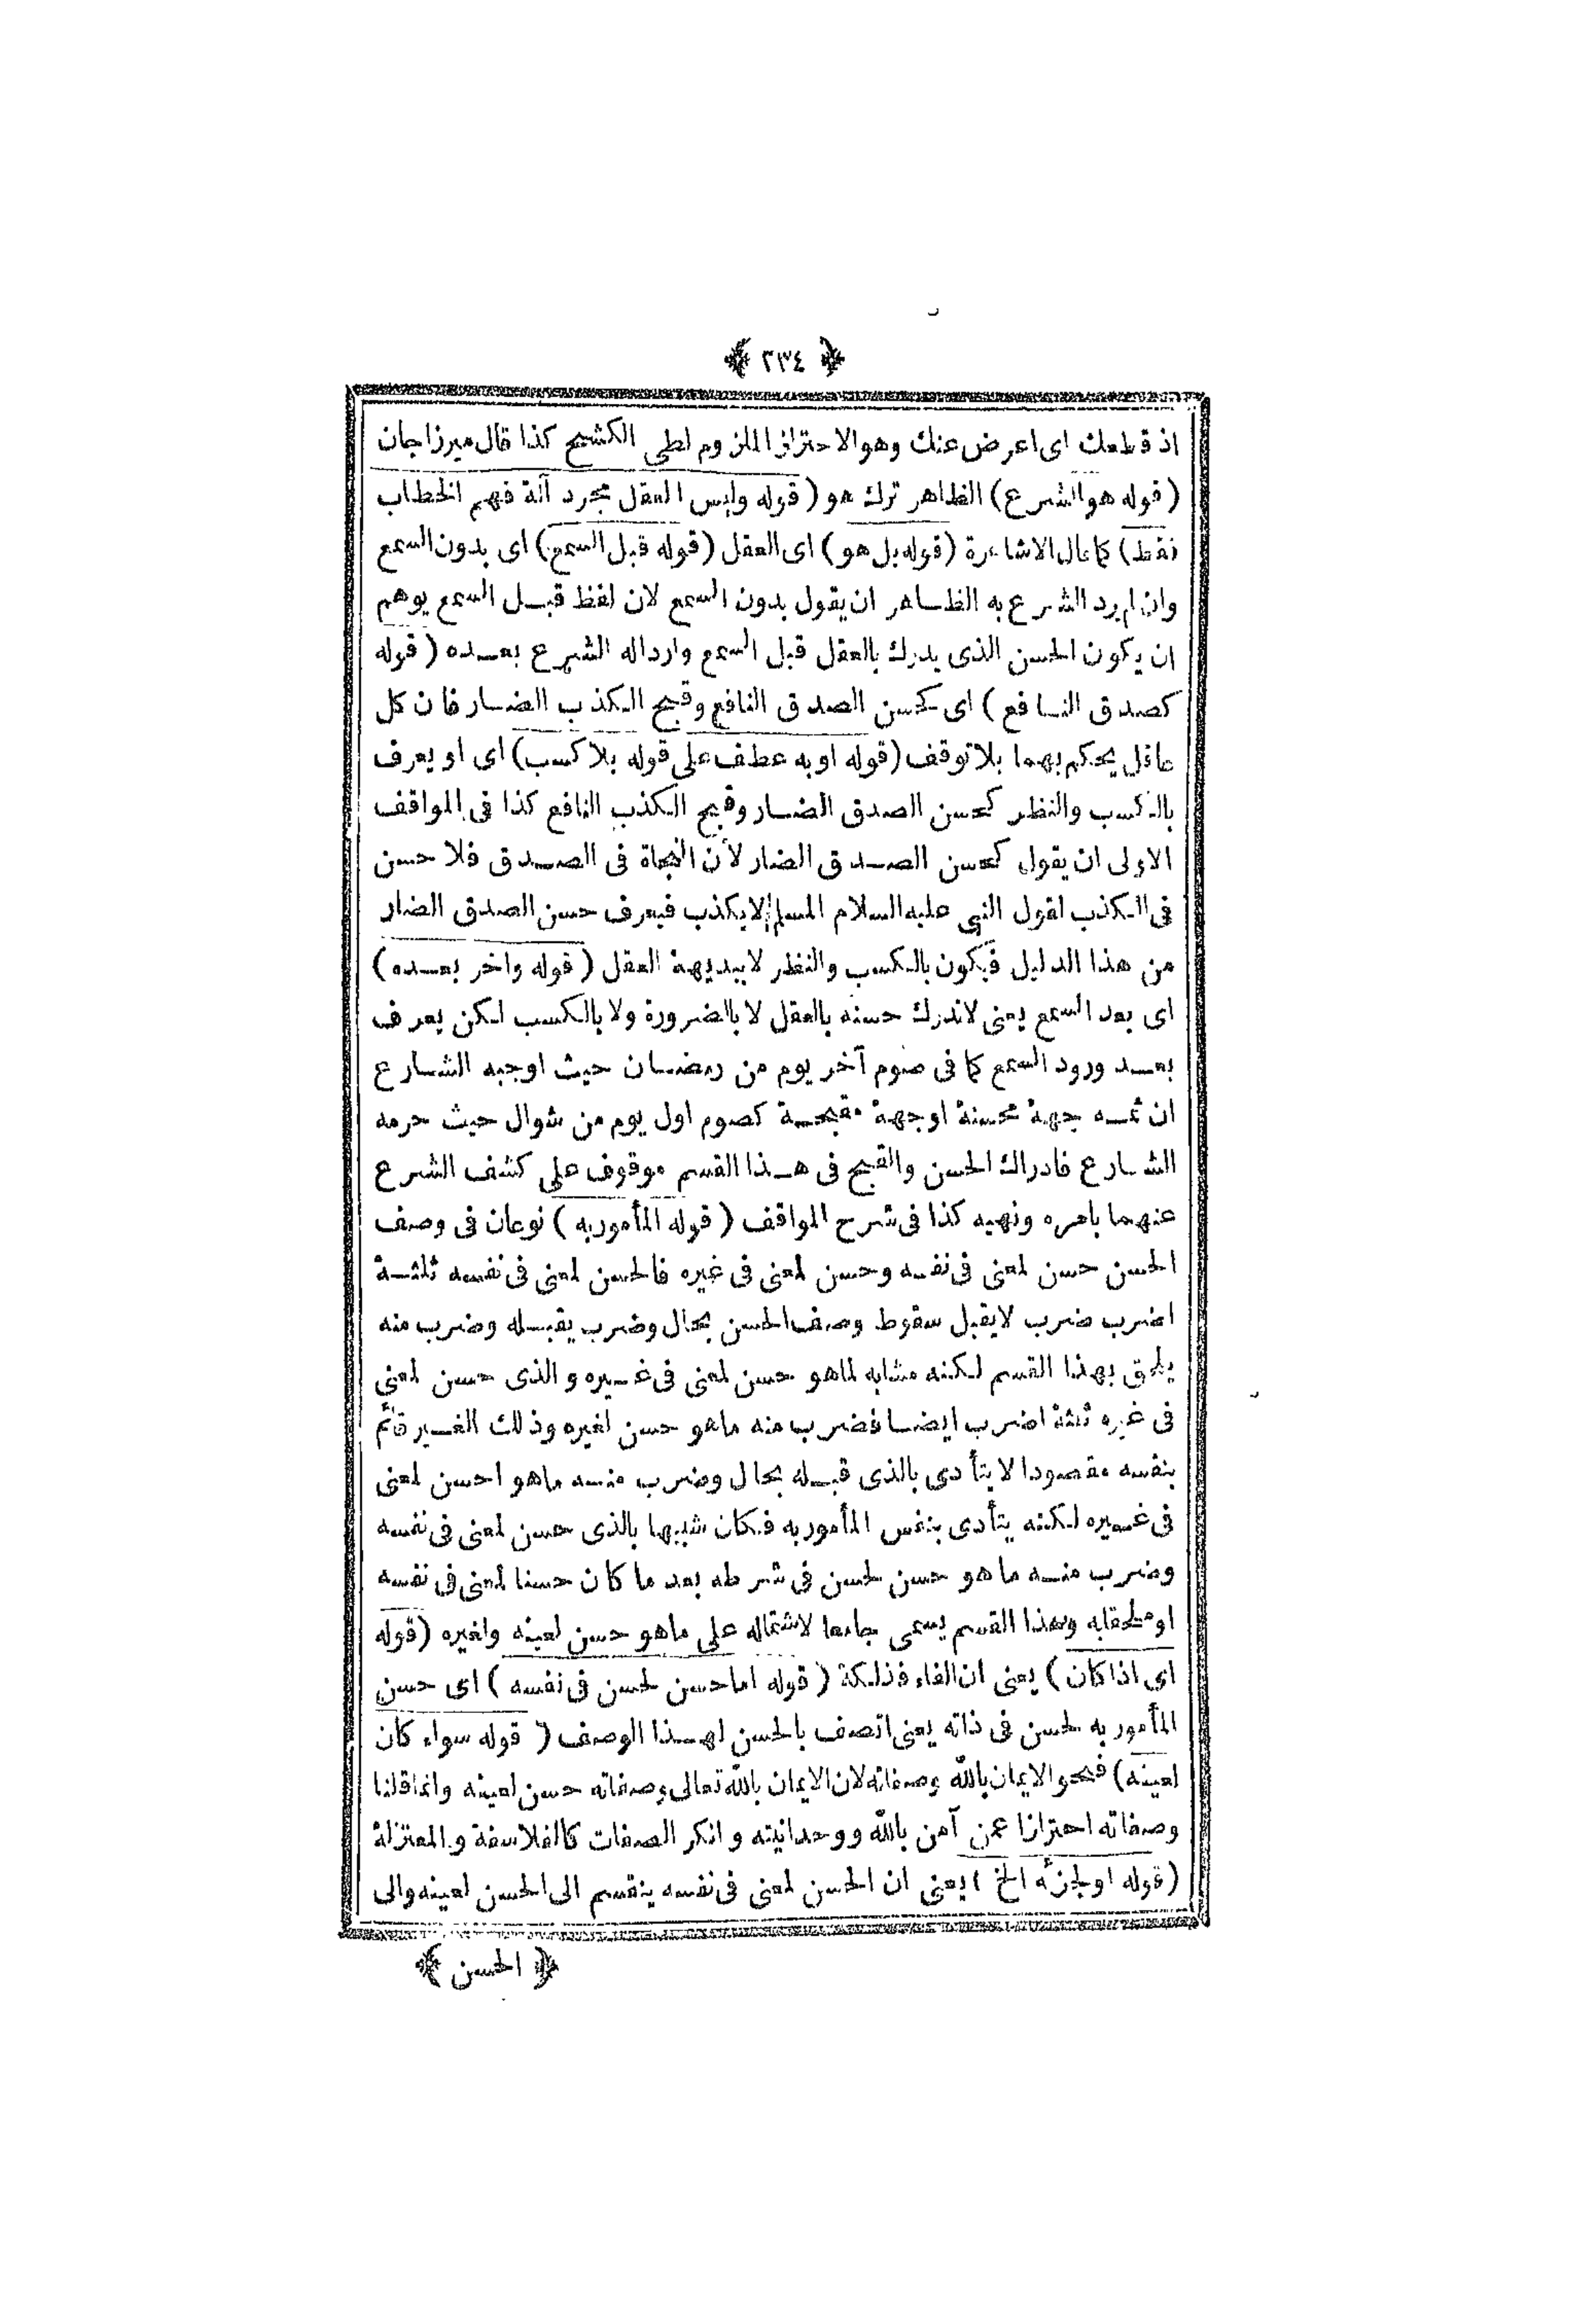 ﴿ ٢٣٤ ﴾
اذ قطعك اى اعرض عنك وهو الاحتراز الملزوم لطى الكشح كذا قال ميرزاجان
( قوله هو الشرع ) الظاهر ترك هو ( قوله وليس العقل مجرد آلة فهم الخطاب
فقط ) كما قال الاشاعرة ( قوله بل هو ) اى العقل ( قوله قبل السمع ) اى بدون السمع
وان لم يرد الشرع به الظاهر ان يقول بدون السمع لان لفظ قبل السمع يوهم
ان يكون الحسن الذى يدرك بالعقل قبل السمع واردا له الشرع بعده ( قوله
كصدق النافع ) اى كحسن الصدق النافع وقبح الكذب الضار فان كل
عاقل يحكم بهما بلا توقف ( قوله او به عطف على قوله بلا كسب ) اى او يعرف
بالكسب والنظر كحسن الصدق الضار وقبح الكذب النافع كذا فى المواقف
الاولى ان يقول كحسن الصدق الضار لأن النجاة فى الصدق فلا حسن
فى الكذب لقول النبى عليه السلام المسلم لا يكذب فيعرف حسن الصدق الضار
من هذا الدليل فيكون بالكسب والنظر لا ببديهة العقل ( قوله واخر بعده )
اى بعد السمع يعنى لاندرك حسنه بالعقل لا بالضرورة ولا بالكسب لكن يعرف
بعد ورود السمع كما فى صوم آخر يوم من رمضان حيث اوجبه الشارع
ان ثمه جهة محسنة او جهة مقبحة كصوم اول يوم من شوال حيث حرمه
الشارع فادراك الحسن والقبح فى هذا القسم موقوف على كشف الشرع
عنهما بامره ونهيه كذا فى شرح المواقف ( قوله المأموربه ) نوعان فى وصف
الحسن حسن لمعنى فى نفسه وحسن لمعنى فى غيره فالحسن لمعنى فى نفسه ثلثة
اضرب ضرب لايقبل سقوط وصف الحسن بحال وضرب يقبله وضرب منه
يلحق بهذا القسم لكنه مشابه لماهو حسن لمعنى فى غيره والذى حسن لمعنى
فى غيره ثلثة اضرب ايضا فضرب منه ماهو حسن لغيره وذلك الغير قائم
بنفسه مقصودا لا يتأدى بالذى قبله بحال وضرب منه ماهو احسن لمعنى
فى غيره لكنه يتأدى بنفس المأموربه فكان شبيها بالذى حسن لمعنى فى نفسه
وضرب منه ما هو حسن لحسن فى شرطه بعد ما كان حسنا لمعنى فى نفسه
او ملحقابه وهذا القسم يسمى جامعا لاشتماله على ماهو حسن لعينه ولغيره ( قوله
اى اذا كان ) يعنى ان الفاء فذلكة ( قوله اما حسن لحسن فى نفسه ) اى حسن
المأمور به لحسن فى ذاته يعنى اتصف بالحسن لهذا الوصف ( قوله سواء كان
لعينه ) فنحو الايمان بالله وصفاته لان الايمان بالله تعالى وصفاته حسن لعينه وانما قلنا
وصفاته احترازا عمن آمن بالله ووحدانيته وانكر الصفات كالفلاسفة والمعتزلة
( قوله او لجزئه الخ ) يعنى ان الحسن لمعنى فى نفسه ينقسم الى الحسن لعينه والى
﴿ الحسن ﴾